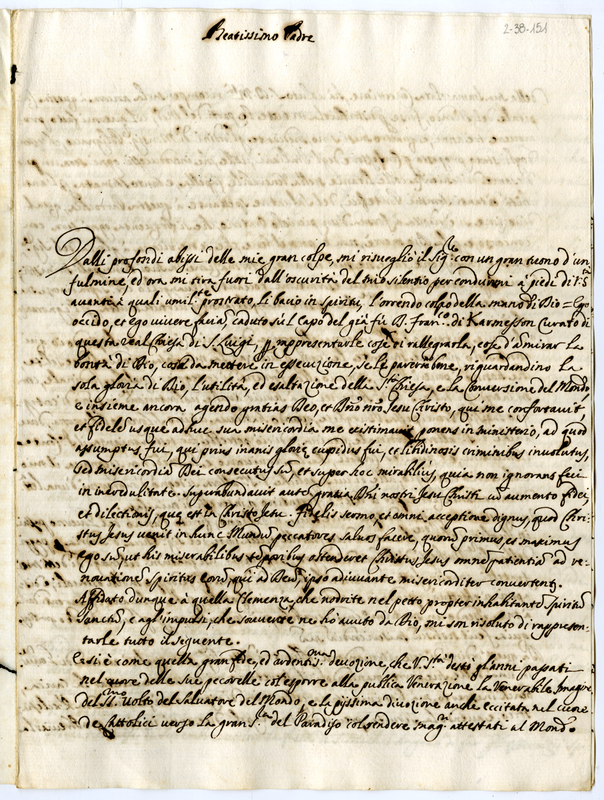 Beatissimo Padre
2-38-151
Dalli profondi abissi delle mie gran colpe, mi risuegliò il Sig.re con un gran tuono d'un
fulmine, ed ora mi tira fuori dall'oscurità del mio silentio per condurmi à piedi di V. S.tà
auanti à quali umil.te prostrato, li bacio in spiritu, l'orrendo colpo della mano di Dio = Ego
occido, et ego vivere faciam caduto sù 'l capo del già fù B. Fran.co di Curato di
questa real Chiesa di S. Luigi, p rappresentarle cose di rallegrarla, cose d'admirar la
bontà di Dio, cose da mettere in essecuzione, se le parerà bene, riguardandino la
sola gloria di Dio, l'utilità, ed esaltazione della S.ta Chiesa, e la Conversione del Mondo
e insieme ancora agendo gratias Deo, et Dno nro Jesu Christo, qui me confortavit,
et fidele usque adhuc sua misericordia me existimavit, ponens in ministerio, ad quod
assumptus fui, qui prius inanis glorie cupidus fui, et libidinosis criminibus involutus,
sed misericordia Dei consecutus sũ, et super hoc mirabilius, quia non ignorans feci
in incredulitate. Superabundavit autẽ gratia Dni nostri Jesu Christi in aumento fidei,
et dilectionis, que est in Christo Jesu. Fidelis sermo, et omni acceptione dignus, quod Chri-
stus Jesus venit in hunc Mundum peccatores salvos facere, quorũ primus, et maximus
ego sũ, ut his miserabilibus temporibus ostenderet Christus Jesus omnẽ patientiã ad re-
novationẽ Spiritus eorũ, qui ad Deũ, ipso adiuvante misericorditer convertent.
Affidato dunque à quella Clemenza, che nodrite nel petto propter inhabitantẽ Spiritũ
Sanctũ, e agl'impulsi, che souuente ne hò auuto da Dio, mi son risoluto di rappresen-
tarle tutto il seguente.
E così è come quella gran fede, ed ardentis.ma deuozione, che V. S.tà destò gl'anni passati
nel cuore delle sue pecorelle col esporre alla publica Venerazione la Venerabile Imagine
del SS.mo Volto del Salvatore del Mondo, e la pijssima diuozione anche eccitata nel cuore
de Cattolici uerso la gran S.ra del Paradiso col rendere imag.ni attestati al Mondo